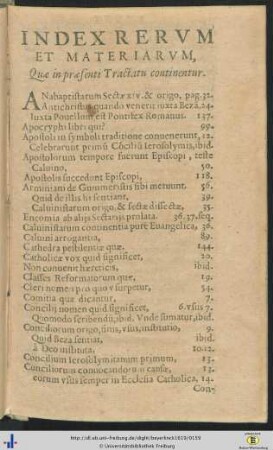 INDEX RERVM
ET MATERIARVM,
Quæ in præsenti Tractatu continentur.
ANabaptistarum Sectæ xiv. & origo, pag. 32.
Antichristus quando venerit iuxta Beza, 24.
Iuxta Povellum est Pontifex Romanus. 137.
Apocryphi libri qui? 99.
Apostoli in symboli traditione convenerunt, 12.
Celebrarunt primũ Cõciliũ Ierosolymis, ibid.
Apostolorum tempore fuerunt Episcopi, teste
Calvino. 50.
Apostolis succedunt Episcopi, 118.
Arminiani & Gummeristæ sibi metuunt. 56.
Quid de illis sit sentiant, 39.
Calvinistarum origo, & sectæ dissectæ, 35.
Encomia ab alijs Sectarijs prolata. 36.37.seq.
Calvinistarum convenentia pure Euangelica, 36.
Calvini arrogantia, 89.
Cathedra pestilentiæ quæ. 144.
Catholicæ vox quid significet, 20.
Non convenit hæreticis, ibid.
Classes Reformatorum quæ, 19.
Cleri nomen pro quo vsurpent, 54.
Comitia quæ dicantur, 7.
Concilij nomen quid significet, 6.vsus 7.
Quomodo scribendũ, ibid. Vnde sumatur, ibid.
Conciliorum origo, finis, vsus, institutio, 9.
Quid Beza sentiat, ibid.
à Deo instituta. 10.12.
Concilium Ierosolymitanum primum, 13.
Conciliorum convocandorũ causæ, 13.
eorum vsus semper in Ecclesia Catholica, 14.
Con-
http://dl.ub.uni-freiburg.de/diglit/beyerlinck1619/0159